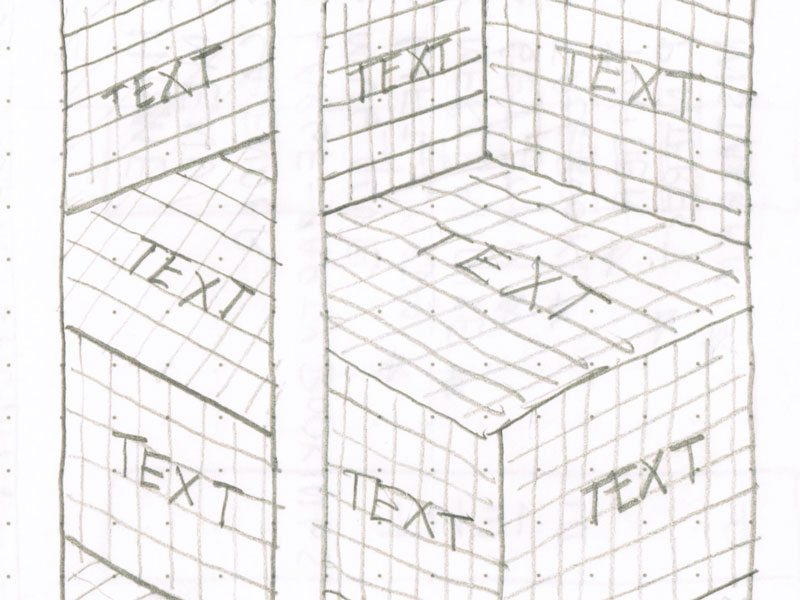 TEXT
TEXT
TEXT
TEXT
TEXT
TEXT
TEXT
TEXT